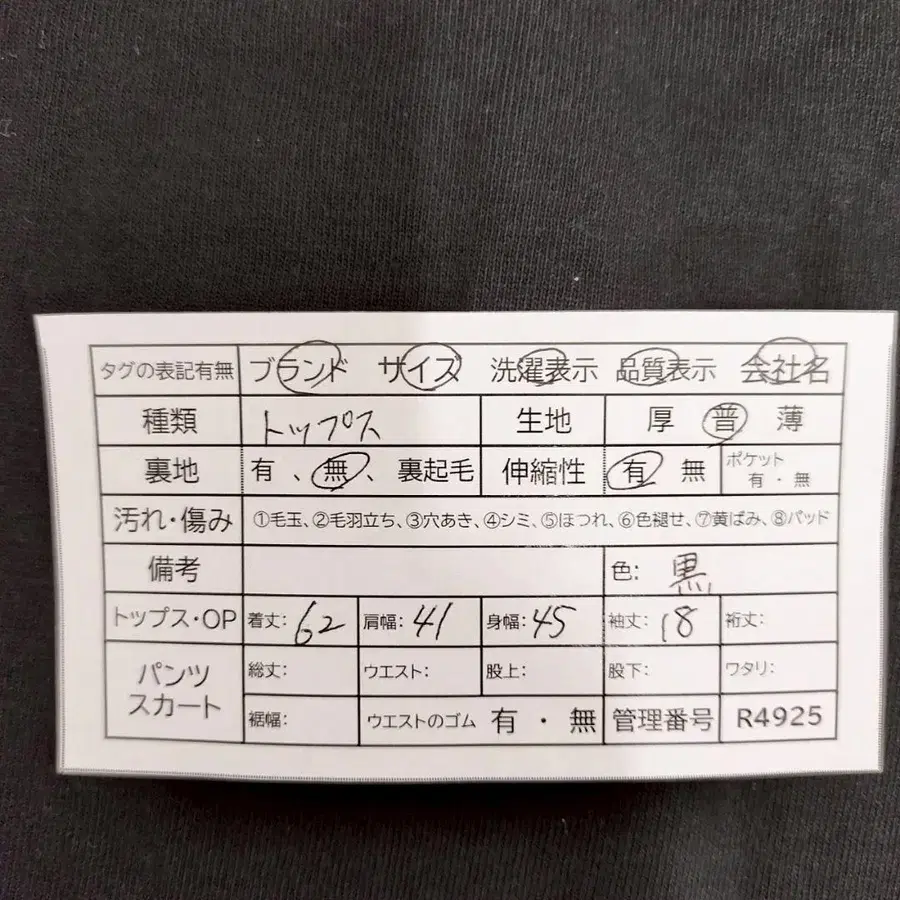 タグの表記有無 ブランド サイズ 洗濯表示 品質表示 会社名
種類 トップス 生地 厚 普 薄
裏地 有 、無、 裏起毛 伸縮性 有 無 ポケット 有・無
汚れ・傷み ①毛玉、②毛羽立ち、③穴あき、④シミ、⑤ほつれ、⑥色褪せ、⑦黄ばみ、⑧パッド
備考 色: 黒
トップス・OP 着丈: 62 肩幅: 41 身幅: 45 袖丈: 18 裄丈:
パンツ スカート 総丈: ウエスト: 股上: 股下: ワタリ:
裾幅: ウエストのゴム 有 ・ 無 管理番号 R4925